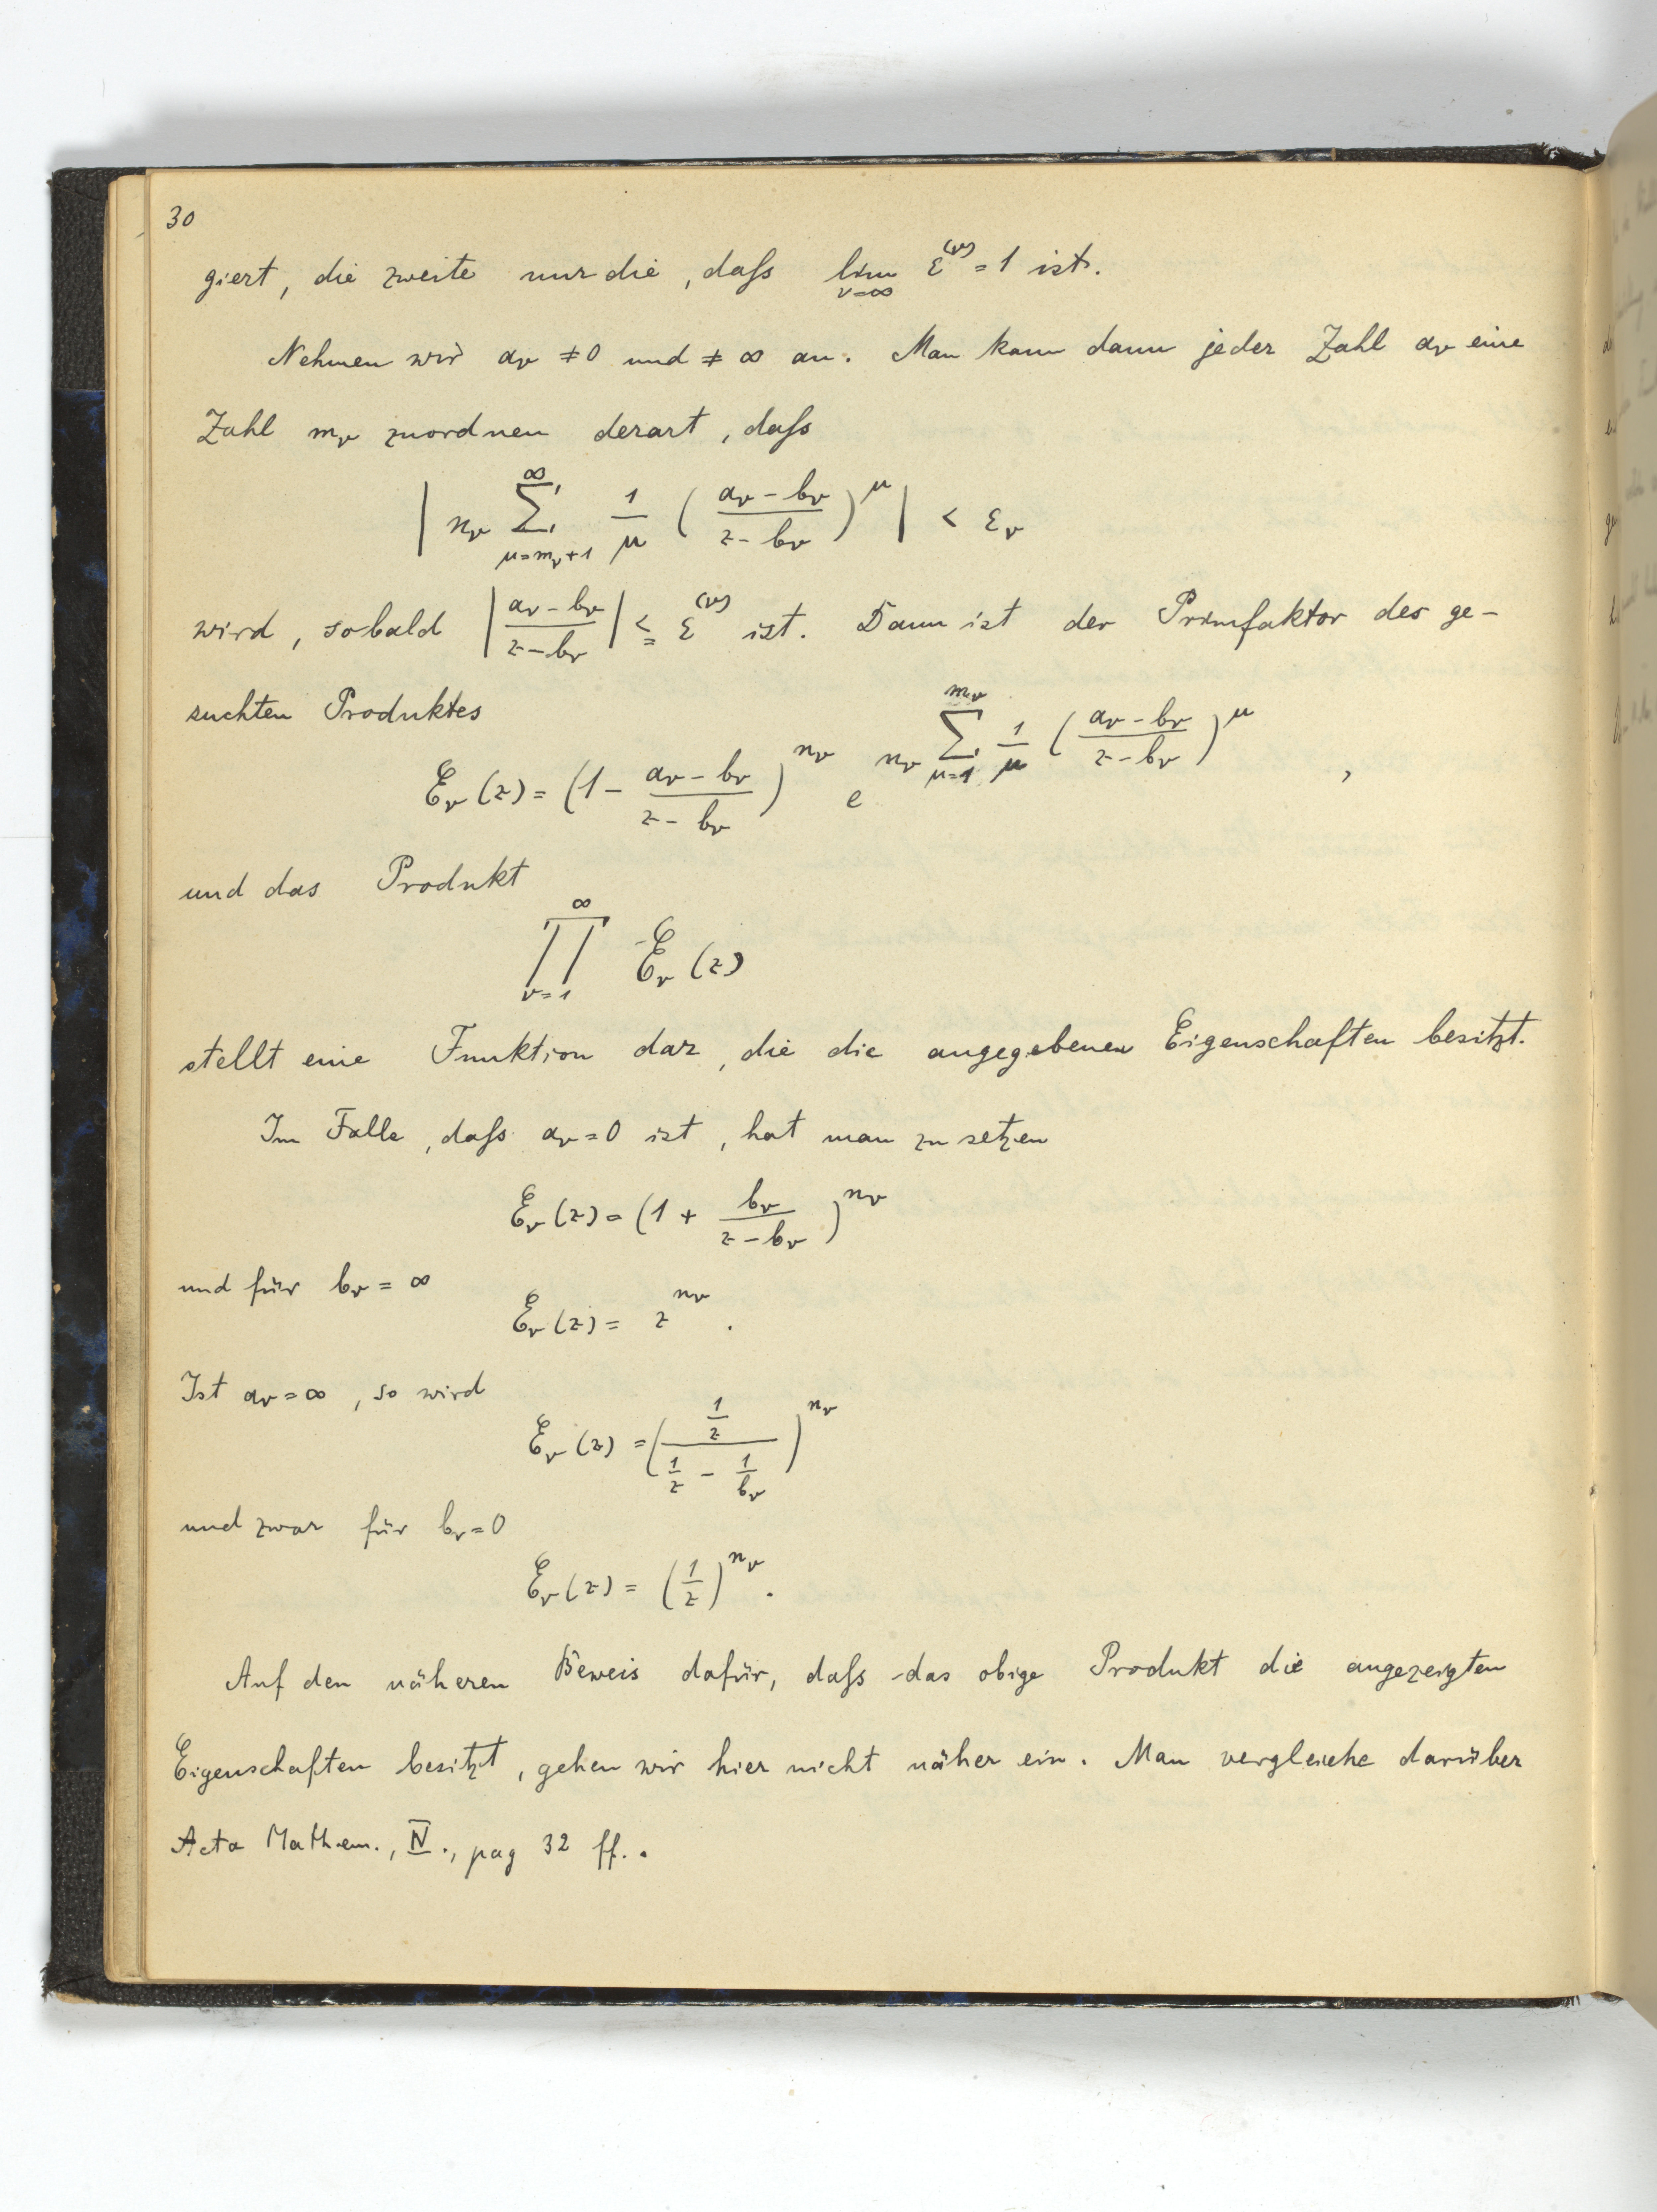 30
giert, die zweite nur die, daſs $\lim_{\nu=\infty} \varepsilon^{(\nu)} = 1$ ist.
Nehmen wir $a_\nu \neq 0$ und $\neq \infty$ an. Man kann dann jeder Zahl $a_\nu$ eine
Zahl $m_\nu$ zuordnen derart, daſs
$\left| n_\nu \sum_{\mu=m_\nu+1}^{\infty} \frac{1}{\mu} \left( \frac{a_\nu - b_\nu}{z - b_\nu} \right)^\mu \right| < \varepsilon_\nu$
wird, sobald $\left| \frac{a_\nu - b_\nu}{z - b_\nu} \right| \leqq \varepsilon^{(\nu)}$ ist. Dann ist der Primfaktor des ge-
suchten Produktes
$\mathcal{E}_\nu(z) = \left( 1 - \frac{a_\nu - b_\nu}{z - b_\nu} \right)^{n_\nu} e^{n_\nu \sum_{\mu=1}^{m_\nu} \frac{1}{\mu} \left( \frac{a_\nu - b_\nu}{z - b_\nu} \right)^\mu},$
und das Produkt
$\prod_{\nu=1}^{\infty} \mathcal{E}_\nu(z)$
stellt eine Funktion dar, die die angegebenen Eigenschaften besitzt.
Im Falle, daſs $a_\nu = 0$ ist, hat man zu setzen
$\mathcal{E}_\nu(z) = \left( 1 + \frac{b_\nu}{z - b_\nu} \right)^{n_\nu}$
und für $b_\nu = \infty$
$\mathcal{E}_\nu(z) = z^{n_\nu}.$
Ist $a_\nu = \infty$, so wird
$\mathcal{E}_\nu(z) = \left( \frac{\frac{1}{z}}{\frac{1}{z} - \frac{1}{b_\nu}} \right)^{n_\nu}$
und zwar für $b_\nu = 0$
$\mathcal{E}_\nu(z) = \left( \frac{1}{z} \right)^{n_\nu}.$
Auf den näheren Beweis dafür, daſs das obige Produkt die angezeigten
Eigenschaften besitzt, gehen wir hier nicht näher ein. Man vergleiche darüber
Acta Mathem., IV., pag 32 ff..